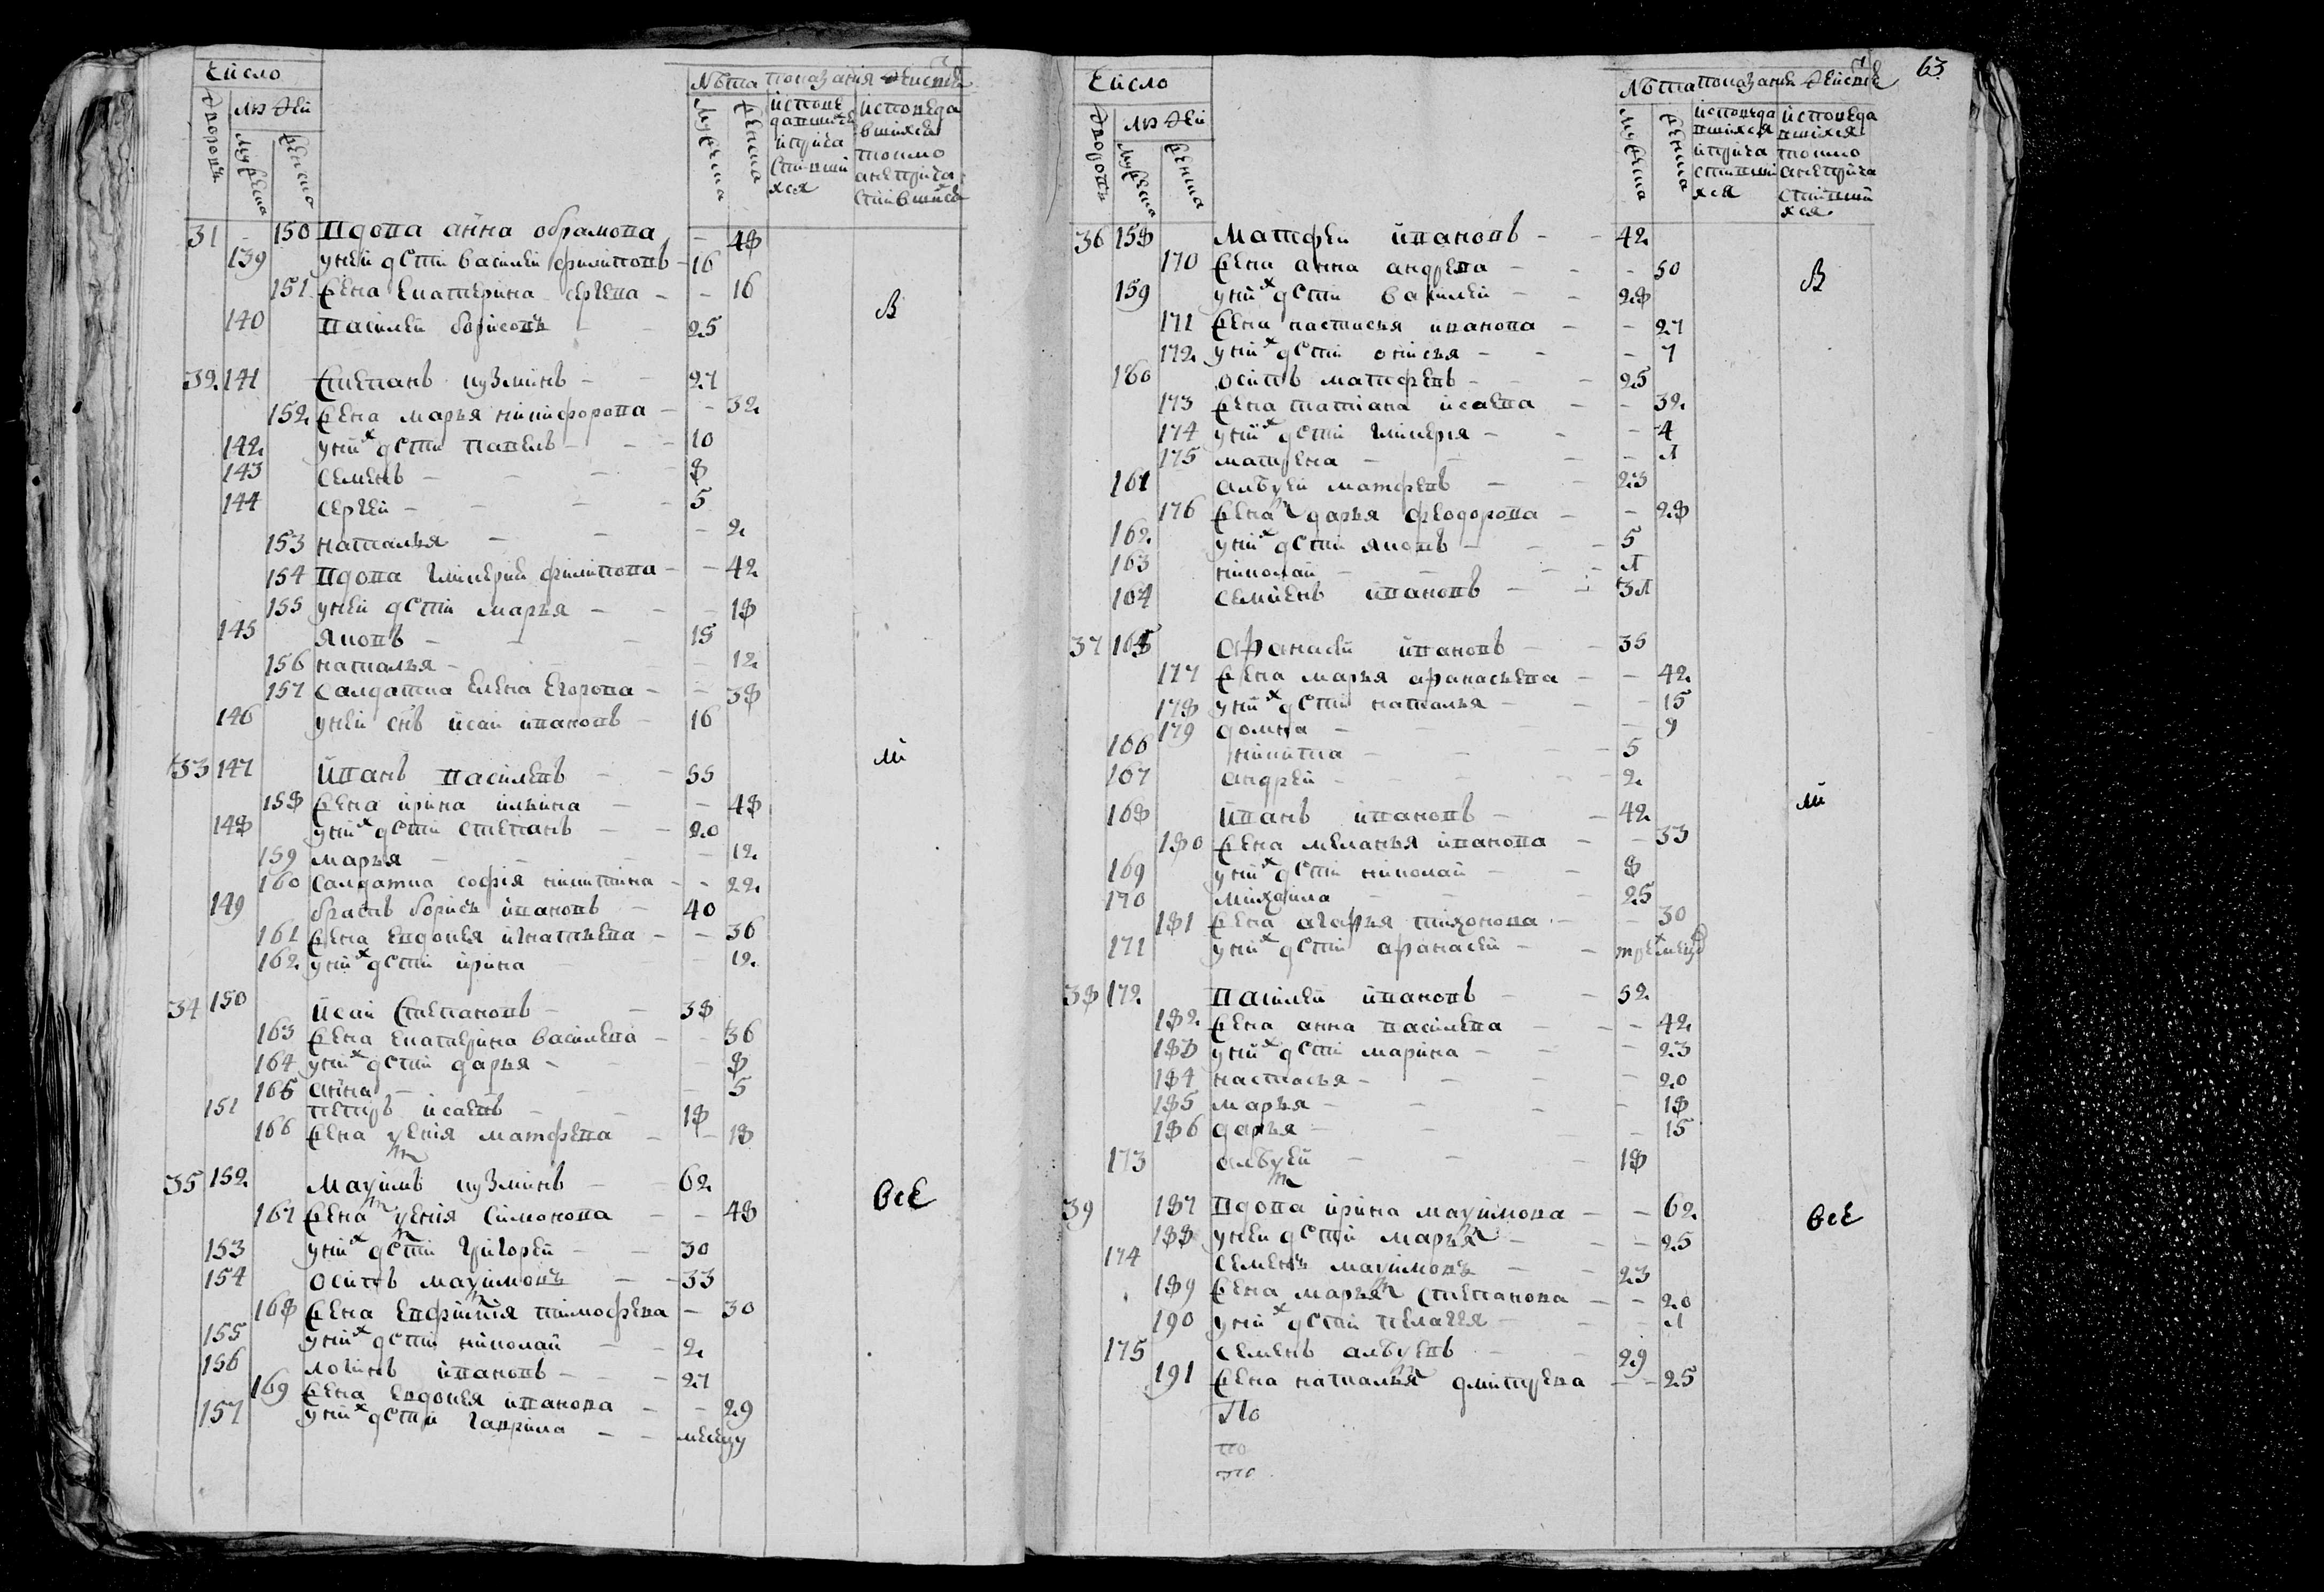 Число
Лѣта показанія дѣйства
дворовъ
людей
мужеска
женска
мужеска
женска
исповедавшихся и причастившихся
исповедавшихся токмо а не причастившихся
31 - 150 вдова анна обрамова - 48
139 у ней дети василей филиповъ - 16
151 жена екатерина сергева - - 16
140 василей борисовъ - - 25
в
32 141 степанъ кузминъ - - 27
152 жена марья никифорова - - 32
142 у них дети павелъ - - 10
143 семенъ - - - 8
144 сергей - - - 5
153 наталья - - - 2
154 вдова гликерия филипова - - 42
155 у ней дети марья - - - 18
145 яковъ - - - 15
156 наталья - - - 12
157 салдатка елена егорова - - 38
146 у ней снъ исай ивановъ - 16
33 147 иванъ василевъ - - 55
ли
158 жена ирина ильина - - 48
148 у них дети степанъ - - 20
159 марья - - - 12
160 салдатка софія никитина - - 22
149 братъ борисъ ивановъ - 40
161 жена евдокея игнатьева - - 36
162 у них дети ирина - - - 12
34 150 исай степановъ - - 38
163 жена екатерина василева - - 36
164 у них дети дарья - - - 8
165 анна - - - 5
151 петръ исаевъ - - 18
166 жена ксенія матфева - - 18
35 152 максимъ кузминъ - - 62
все
167 жена ксенія симонова - - 48
153 у них дети григорей - - 30
154 осипъ максимовъ - - 33
168 жена евфимия тимофева - - 30
155 у них дети николай - - 2
156 логинъ ивановъ - - 27
169 жена евдокея иванова - - 29
157 у них дети гаврила - -
63
Число
Лѣта показанія дѣйства
дворовъ
людей
мужеска
женска
мужеска
женска
исповедавшихся и причастившихся
исповедавшихся токмо а не причастившихся
36 158 матфей ивановъ - - 42
170 жена анна андрева - - - 50
в
159 у них дети василей - - 28
171 жена настасья иванова - - 27
172 у них дети онисья - - - 7
160 осипъ матфевъ - - 25
173 жена татіана исаева - - 32
174 у них дети гликерія - - - 4
175 матрена - - - л
161 алѣксей матфевъ - - 23
176 жена дарья феодорова - - 28
162 у них дети яковъ - - - 5
163 николай - - - л
164 семенъ ивановъ - - 3л
37 165 афанасей ивановъ - - 35
177 жена марья афанасьева - - 42
178 у них дети наталья - - - 15
179 домна - - - 9
166 никита - - - 5
167 андрей - - - 2
168 иванъ ивановъ - - 42
ли
180 жена меланья иванова - - 33
169 у них дети николай - - 8
170 михаила - - 25
181 жена агафья тихонова - - 30
171 у них дети афанасей - -
38 172 василей ивановъ - - 52
182 жена анна василева - - - 42
183 у них дети марина - - - 23
184 настасья - - - 20
185 марья - - - 18
186 дарья - - - 15
173 алѣксей - - - 18
39 187 вдова ирина максимова - - 62
все
188 у ней дети марья - - - 25
174 семенъ максимовъ - - 23
189 жена марья степанова - - 20
190 у них дети пелагея - - - л
175 семенъ алѣксевъ - - 29
191 жена наталья дмитрева - - 25
По
по